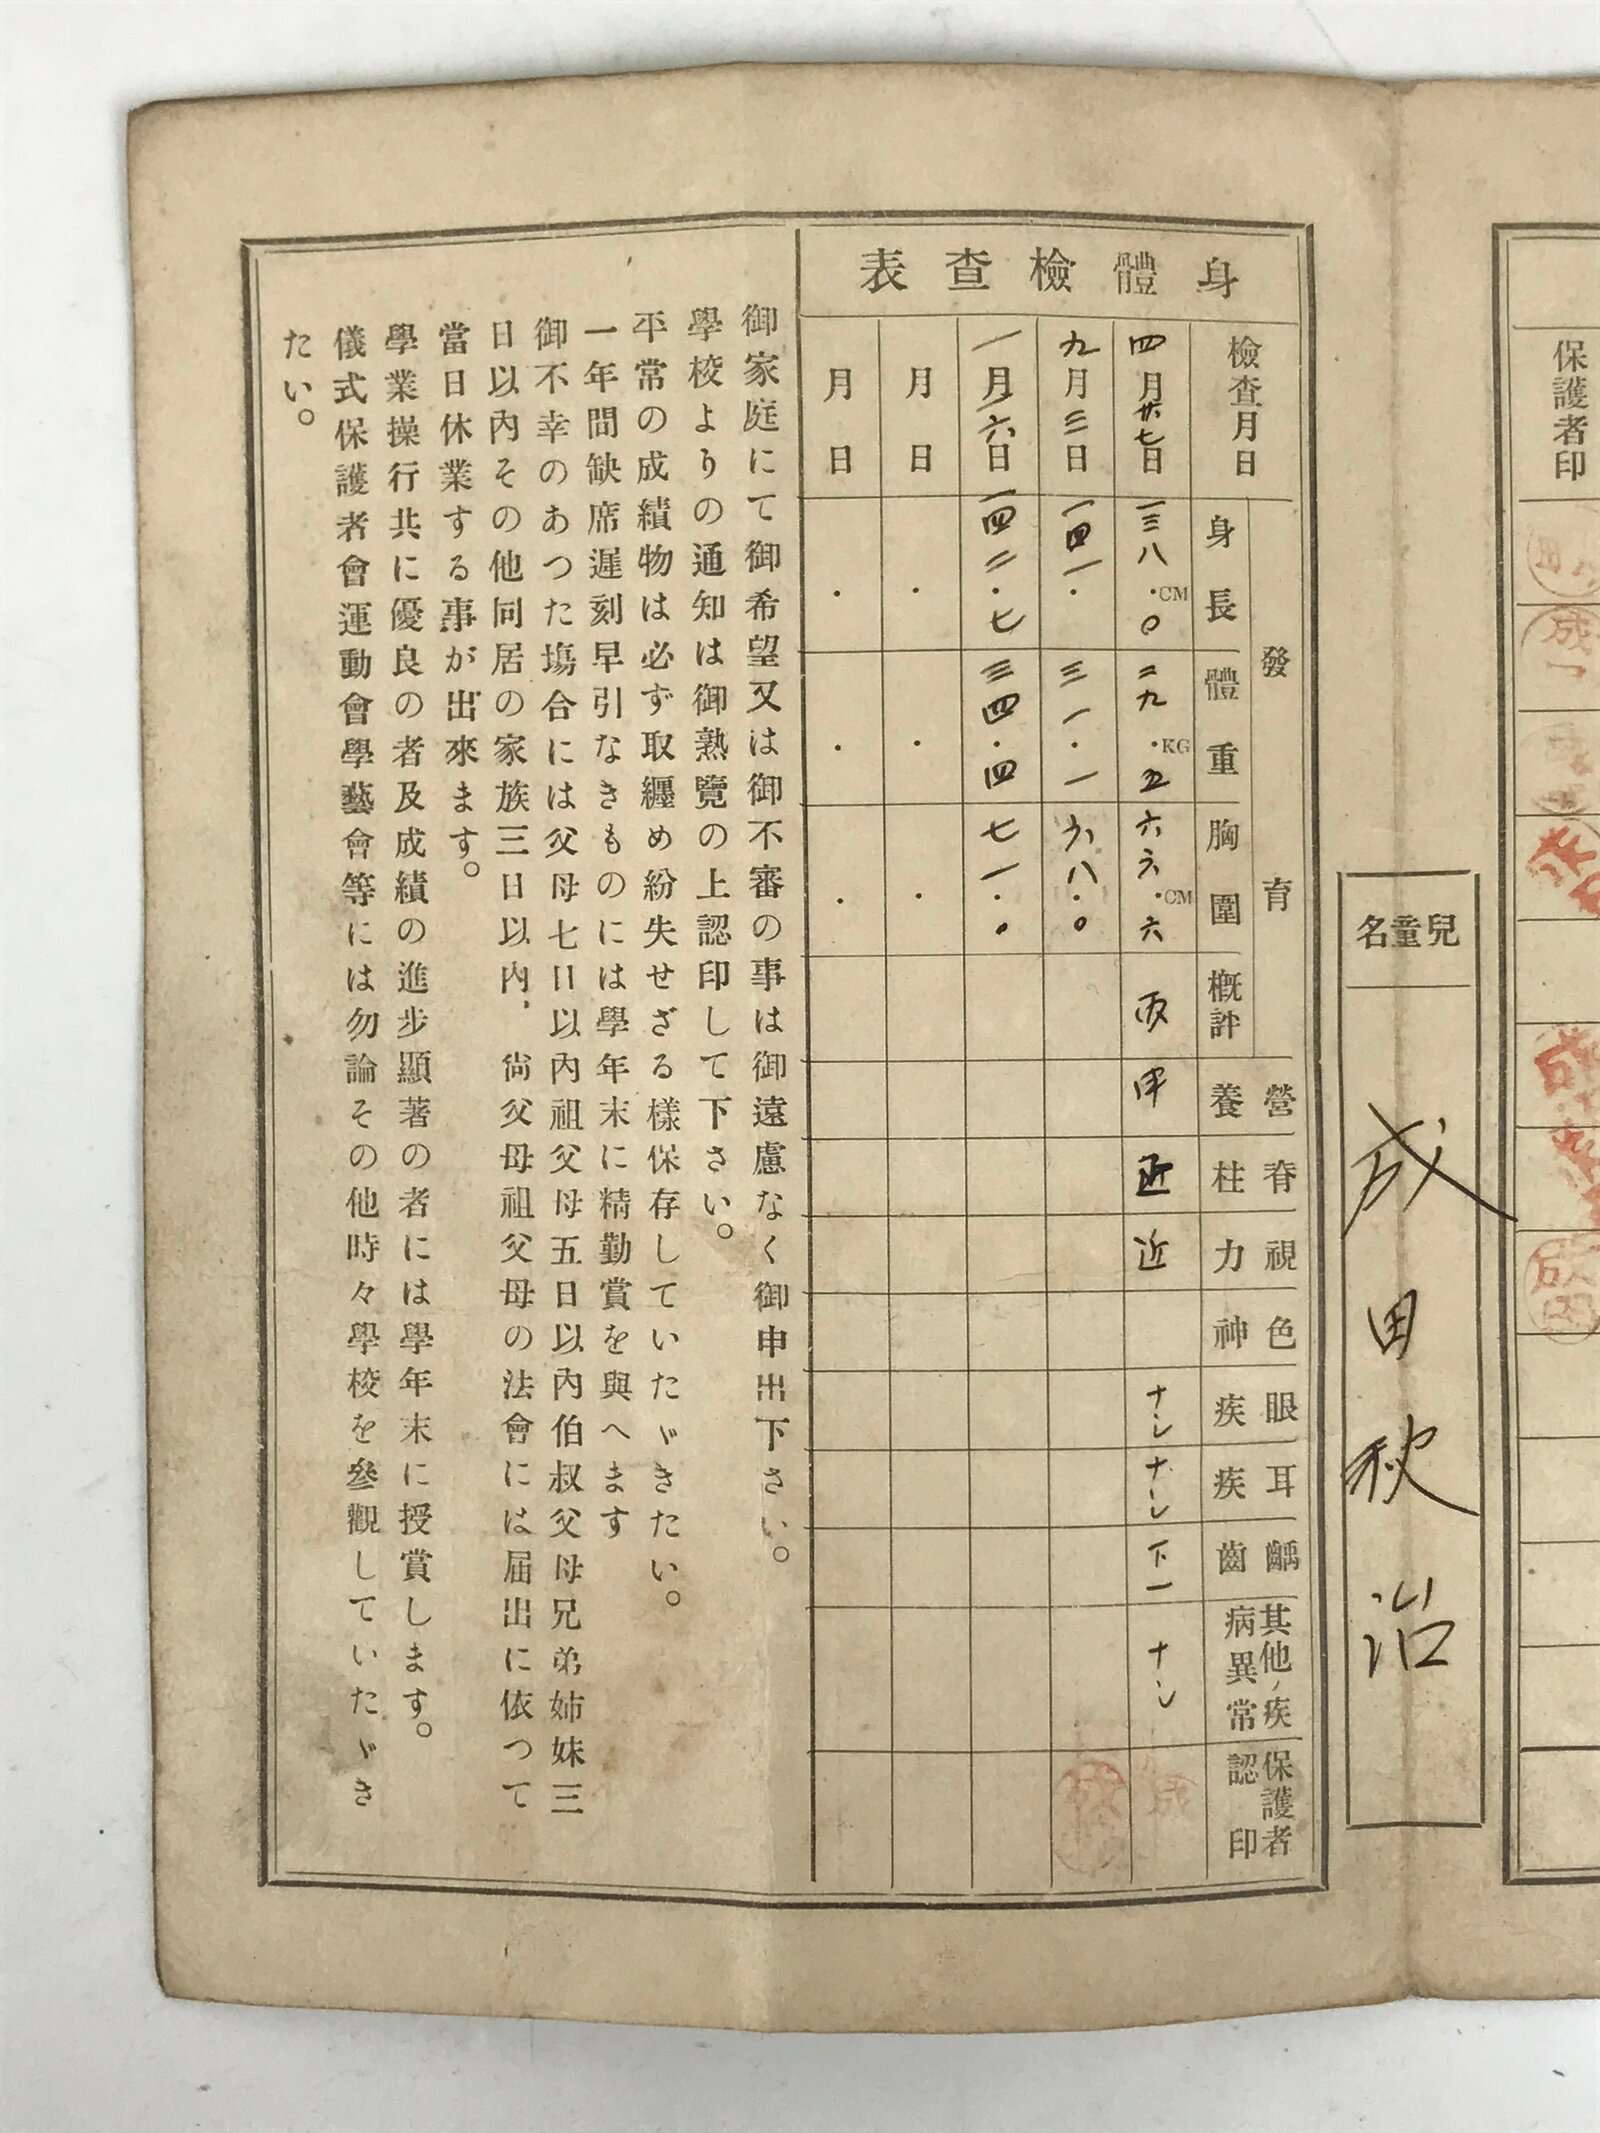 保護者印
兒童名
成田秋治
身體檢查表
檢查月日
四月廿七日
九月三日
一月六日
月日
月日
發育
身長
一三八.〇CM
一四一.
一四二.七
體重
二九.五KG
三一.一
三四.四
胸圍
六六.六CM
六八.〇
七一.〇
概評
丙
營養
甲
脊柱
視力
近
色神
眼疾
ナシ
耳疾
ナシ
齲齒
下一
其他ノ疾病異常
ナシ
保護者認印
御家庭にて御希望又は御不審の事は御遠慮なく御申出下さい。
學校よりの通知は御熟覽の上認印して下さい。
平常の成績物は必ず取纒め紛失せざる樣保存していたゞきたい。
一年間缺席遲刻早引なきものには學年末に精勤賞を與へます
御不幸のあつた塲合には父母七日以內祖父母五日以內伯叔父母兄弟姉妹三
日以內その他同居の家族三日以內、尙父母祖父母の法會には屆出に依つて
當日休業する事が出來ます。
學業操行共に優良の者及成績の進步顯著の者には學年末に授賞します。
儀式保護者會運動會學藝會等には勿論その他時々學校を參觀していたゞき
たい。